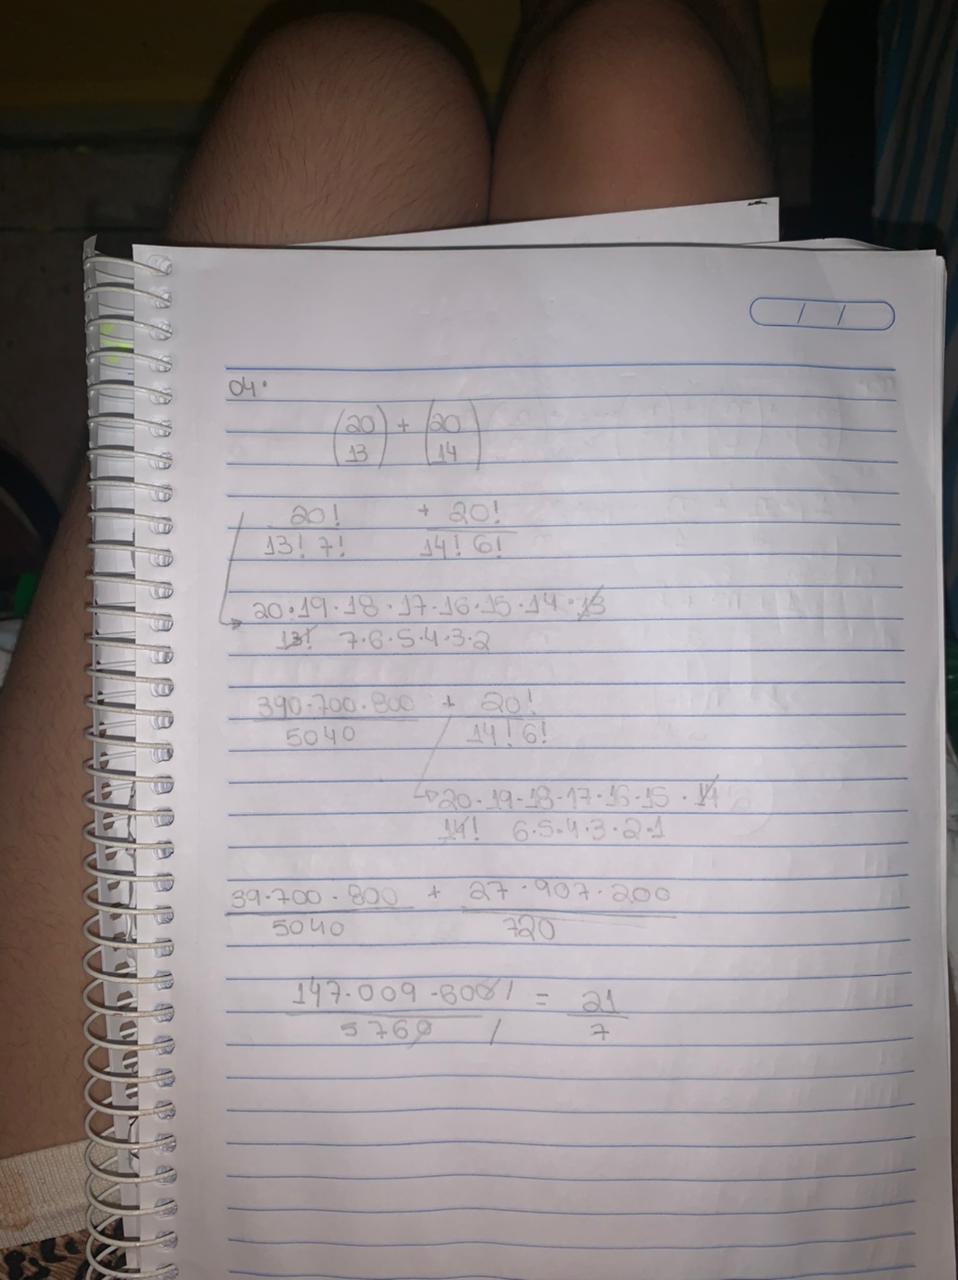 04.
(20 13) + (20 14)
20! + 20!
13! 7! 14! 6!
20.19.18.17.16.15.14.13
13! 7.6.5.4.3.2
390.700.800 + 20!
5040 14! 6!
20.19.18.17.16.15.14
14! 6.5.4.3.2.1
39.700.800 + 27.907.200
5040 720
147.009.600 = 21
5760 7